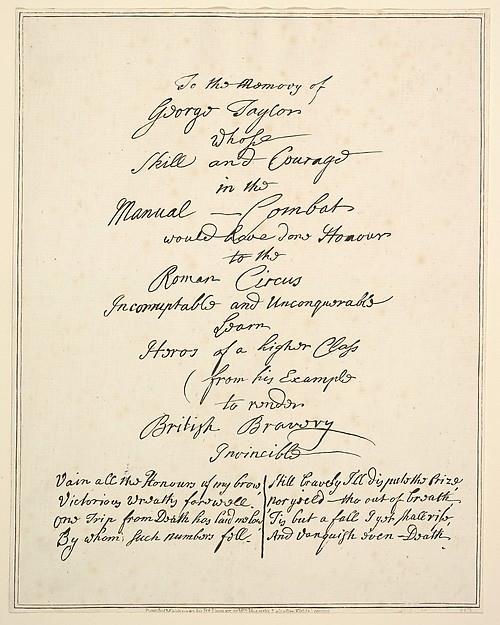 To the Memory of
George Taylor
whose
Skill and Courage
in the
Manual — Combat
would have done Honour
to the
Roman Circus
Incorruptable and Unconquerable
Learn
Heros of a higher Class
( from his Example
to render
British Bravery
Invincible
Vain all the Honours of my brow
Victorious wreaths farewell.
One Trip from Death has laid me low
By whom such numbers fell.
Still bravely I'll dispute the Prize
nor yield — tho out of breath,
'Tis but a fall I yet shall rise,
And vanquish even — Death.